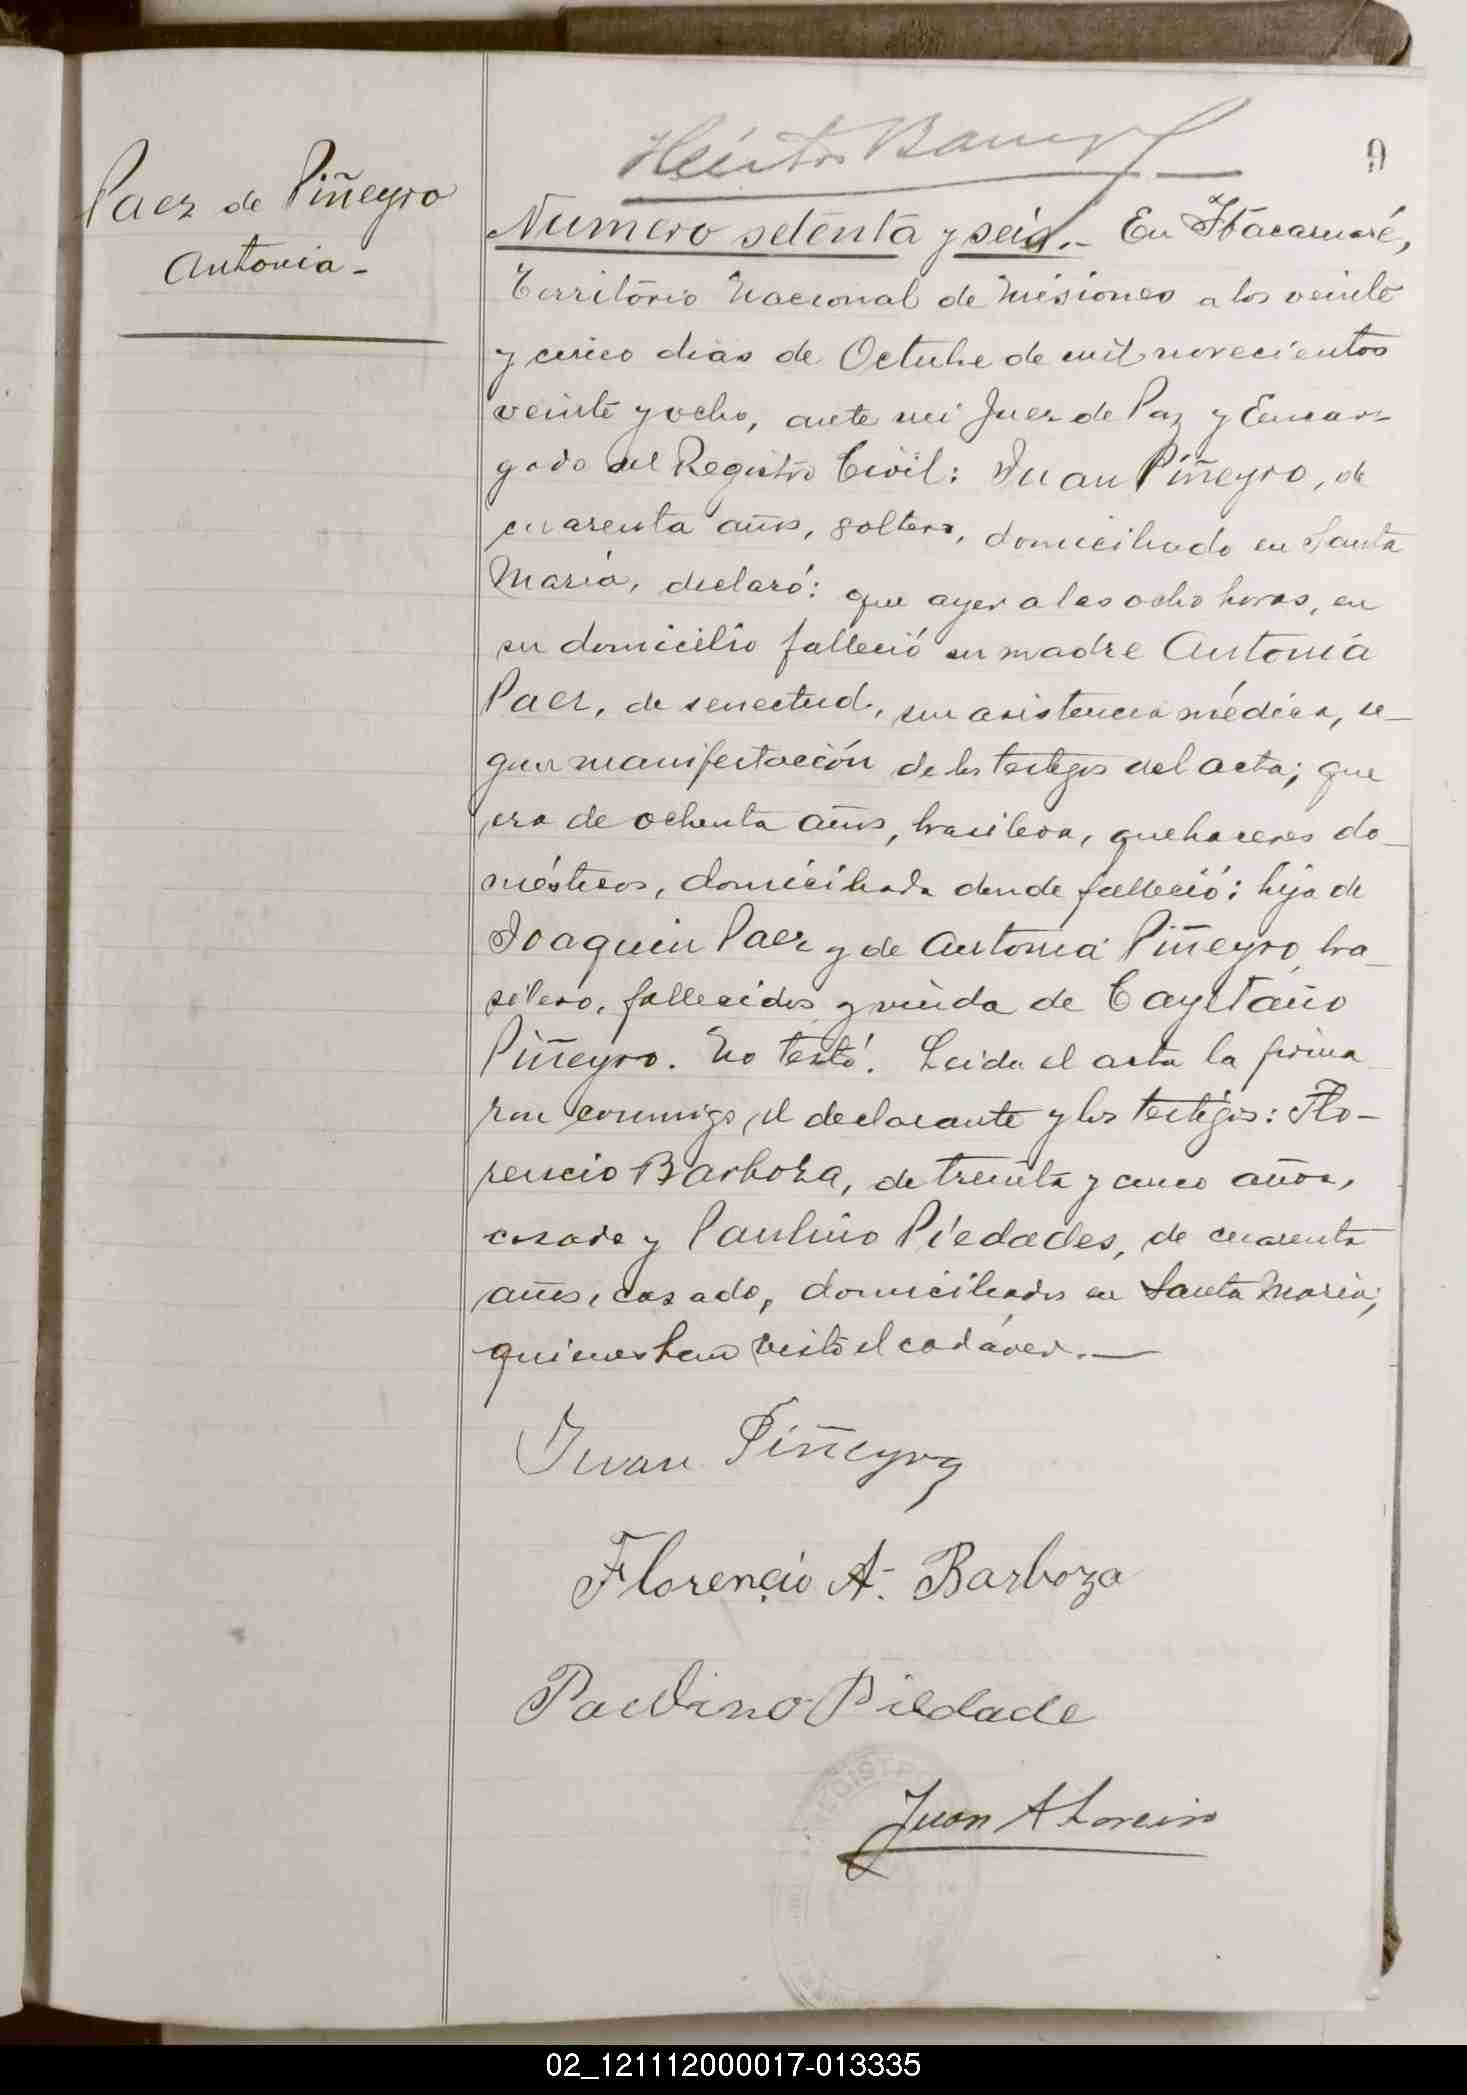 Héctor
9
Paez de Piñeyro
Antonia -
Numero setenta y seis.- En Itacaruaré,
Territorio Nacional de Misiones a los veinte
y cinco dias de Octubre de mil novecientos
veinte y ocho, ante mi Juez de Paz y Encar-
gado del Registro Civil: Juan Piñeyro, de
cuarenta años, soltero, domiciliado en Santa
Maria, declaró: que ayer a las ocho horas, en
su domicilio falleció su madre Antonia
Paez, de senectud, sin asistencia médica, se-
gun manifestación de los testigos del acta; que
era de ochenta años, brasilera, quehaceres do-
mésticos, domiciliada donde falleció; hija de
Joaquin Paez y de Antonia Piñeyro, bra-
silero, fallecidos y viuda de Cayetano
Piñeyro. No testó. Leida el acta la firma
ron conmigo, el declarante y los testigos: Flo-
rencio Barboza, de treinta y cinco años,
casado y Paulino Piedades, de cuarenta
años, casado, domiciliados en Santa Maria;
quienes han visto el cadáver.-
Juan Piñeyro
Florencio A. Barboza
Paulino Piedade
Juan A
REGISTRO
02_121112000017-013335